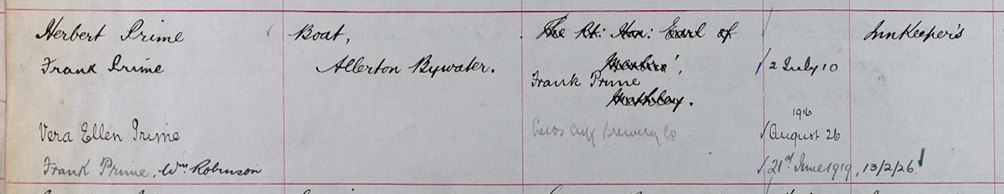 Herbert Prime Boat, The Rt. Hon: Earl of InnKeeper's
Frank Prime Allerton Bywater. 2 July 10
Frank Prime
1916
Vera Ellen Prime Brewery Co August 26
Frank Prime, Wm Robinson 21st June 1919, 13/2/26